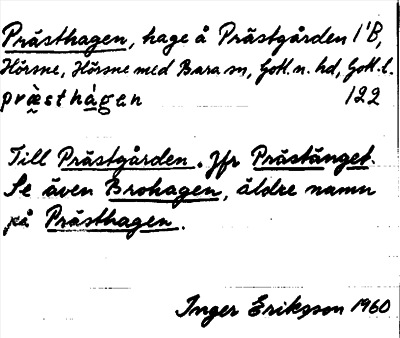 Prästhagen, hage å Prästgården 1'B,
Hörsne, Hörsne med Bara sn, Gotl. n. hd, Gotl. l.
præ̀sthàgen 122
Till Prästgården. Jfr Prästänget.
Se även Brohagen, äldre namn
på Prästhagen.
Inger Eriksson 1960